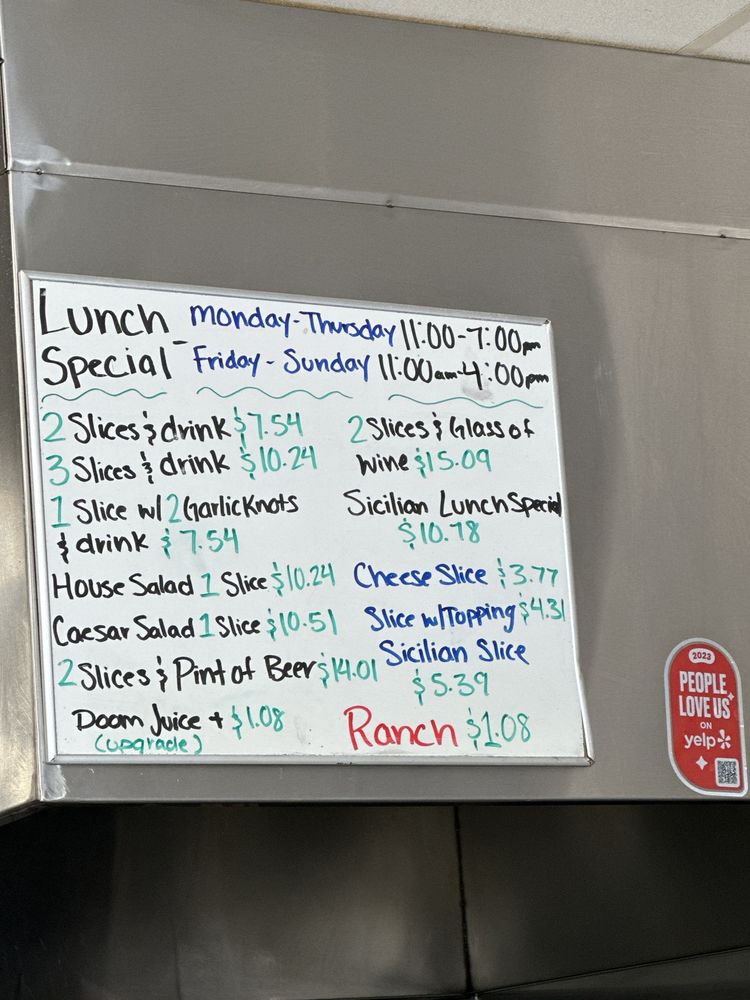 Lunch Monday-Thursday 11:00-7:00pm
Special - Friday - Sunday 11:00am-4:00pm
2 Slices & drink $7.54
3 Slices & drink $10.24
1 Slice w/ 2 Garlic Knots
& drink $7.54
House Salad 1 Slice $10.24
Caesar Salad 1 Slice $10.51
2 Slices & Pint of Beer $14.01
Doom Juice + $1.08
(upgrade)
2 Slices & Glass of
wine $15.09
Sicilian Lunch Special
$10.78
Cheese Slice $3.77
Slice w/Topping $4.31
Sicilian Slice
$5.39
Ranch $1.08
2023
PEOPLE
LOVE US
ON
yelp